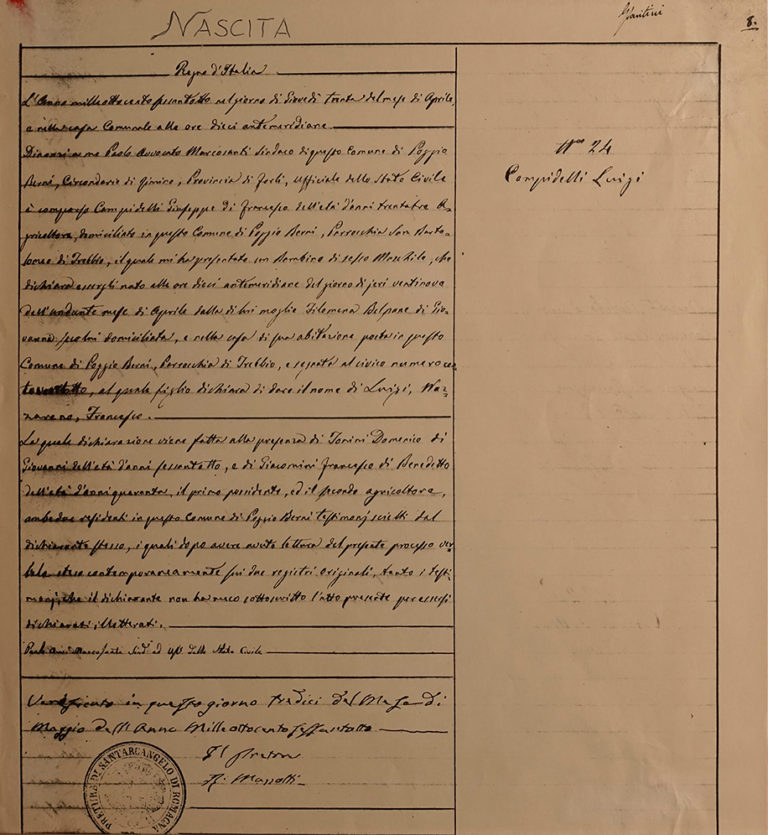 NASCITA
8.
Regno d'Italia
L'Anno milleottocento sessantotto nel giorno di Giovedì trenta del mese di Aprile,
e nella casa Comunale alle ore dieci antemeridiane.
Dinanzi a me Paolo Avvocato Marcosanti Sindaco di questo Comune di Poggio
Berni, Circondario di Rimini, Provincia di Forlì, Uffiziale dello Stato Civile
è comparso Campidelli Giuseppe di Francesco dell'età d'anni trentatre A-
gricoltore, domiciliato in questo Comune di Poggio Berni, Parrocchia San Barto-
lomeo di Trebbio, il quale mi ha presentato un Bambino di sesso Maschile, che
dichiara essergli nato alle ore dieci antemeridiane del giorno di jeri ventinove
dell'andante mese di Aprile dalla di lui moglie Filomena Belpane di Gio-
vanni seco lui domiciliata, e nella casa di sua abitazione posta in questo
Comune di Poggio Berni, Parrocchia di Trebbio, e segnata al civico numero
al quale figlio dichiara di dare il nome di Luigi, Na-
zzareno, Francesco.
La quale dichiarazione viene fatta alla presenza di Tonini Domenico di
Giovanni dell'età d'anni sessantotto, e di Giacomini Francesco di Benedetto
dell'età d'anni quaranta, il primo possidente, ed il secondo agricoltore,
ambedue residenti in questo Comune di Poggio Berni testimonj scielti dal
dichiarante stesso, i quali dopo avere avuto lettura del presente processo ver-
bale steso contemporaneamente sui due registri originali, tanto i testi-
monj, che il dichiarante non hanno sottoscritto l'atto presente per essersi
dichiarati illetterati.
Paolo Marcosanti Sind. ed Uff. dello Stato Civile
Verificato in questo giorno tredici del Mese di
Maggio dell'Anno Milleottocento sessantotto
Il Pretore
PRETURA DI SANTARCANGELO DI ROMAGNA
N.ro 24
Campidelli Luigi